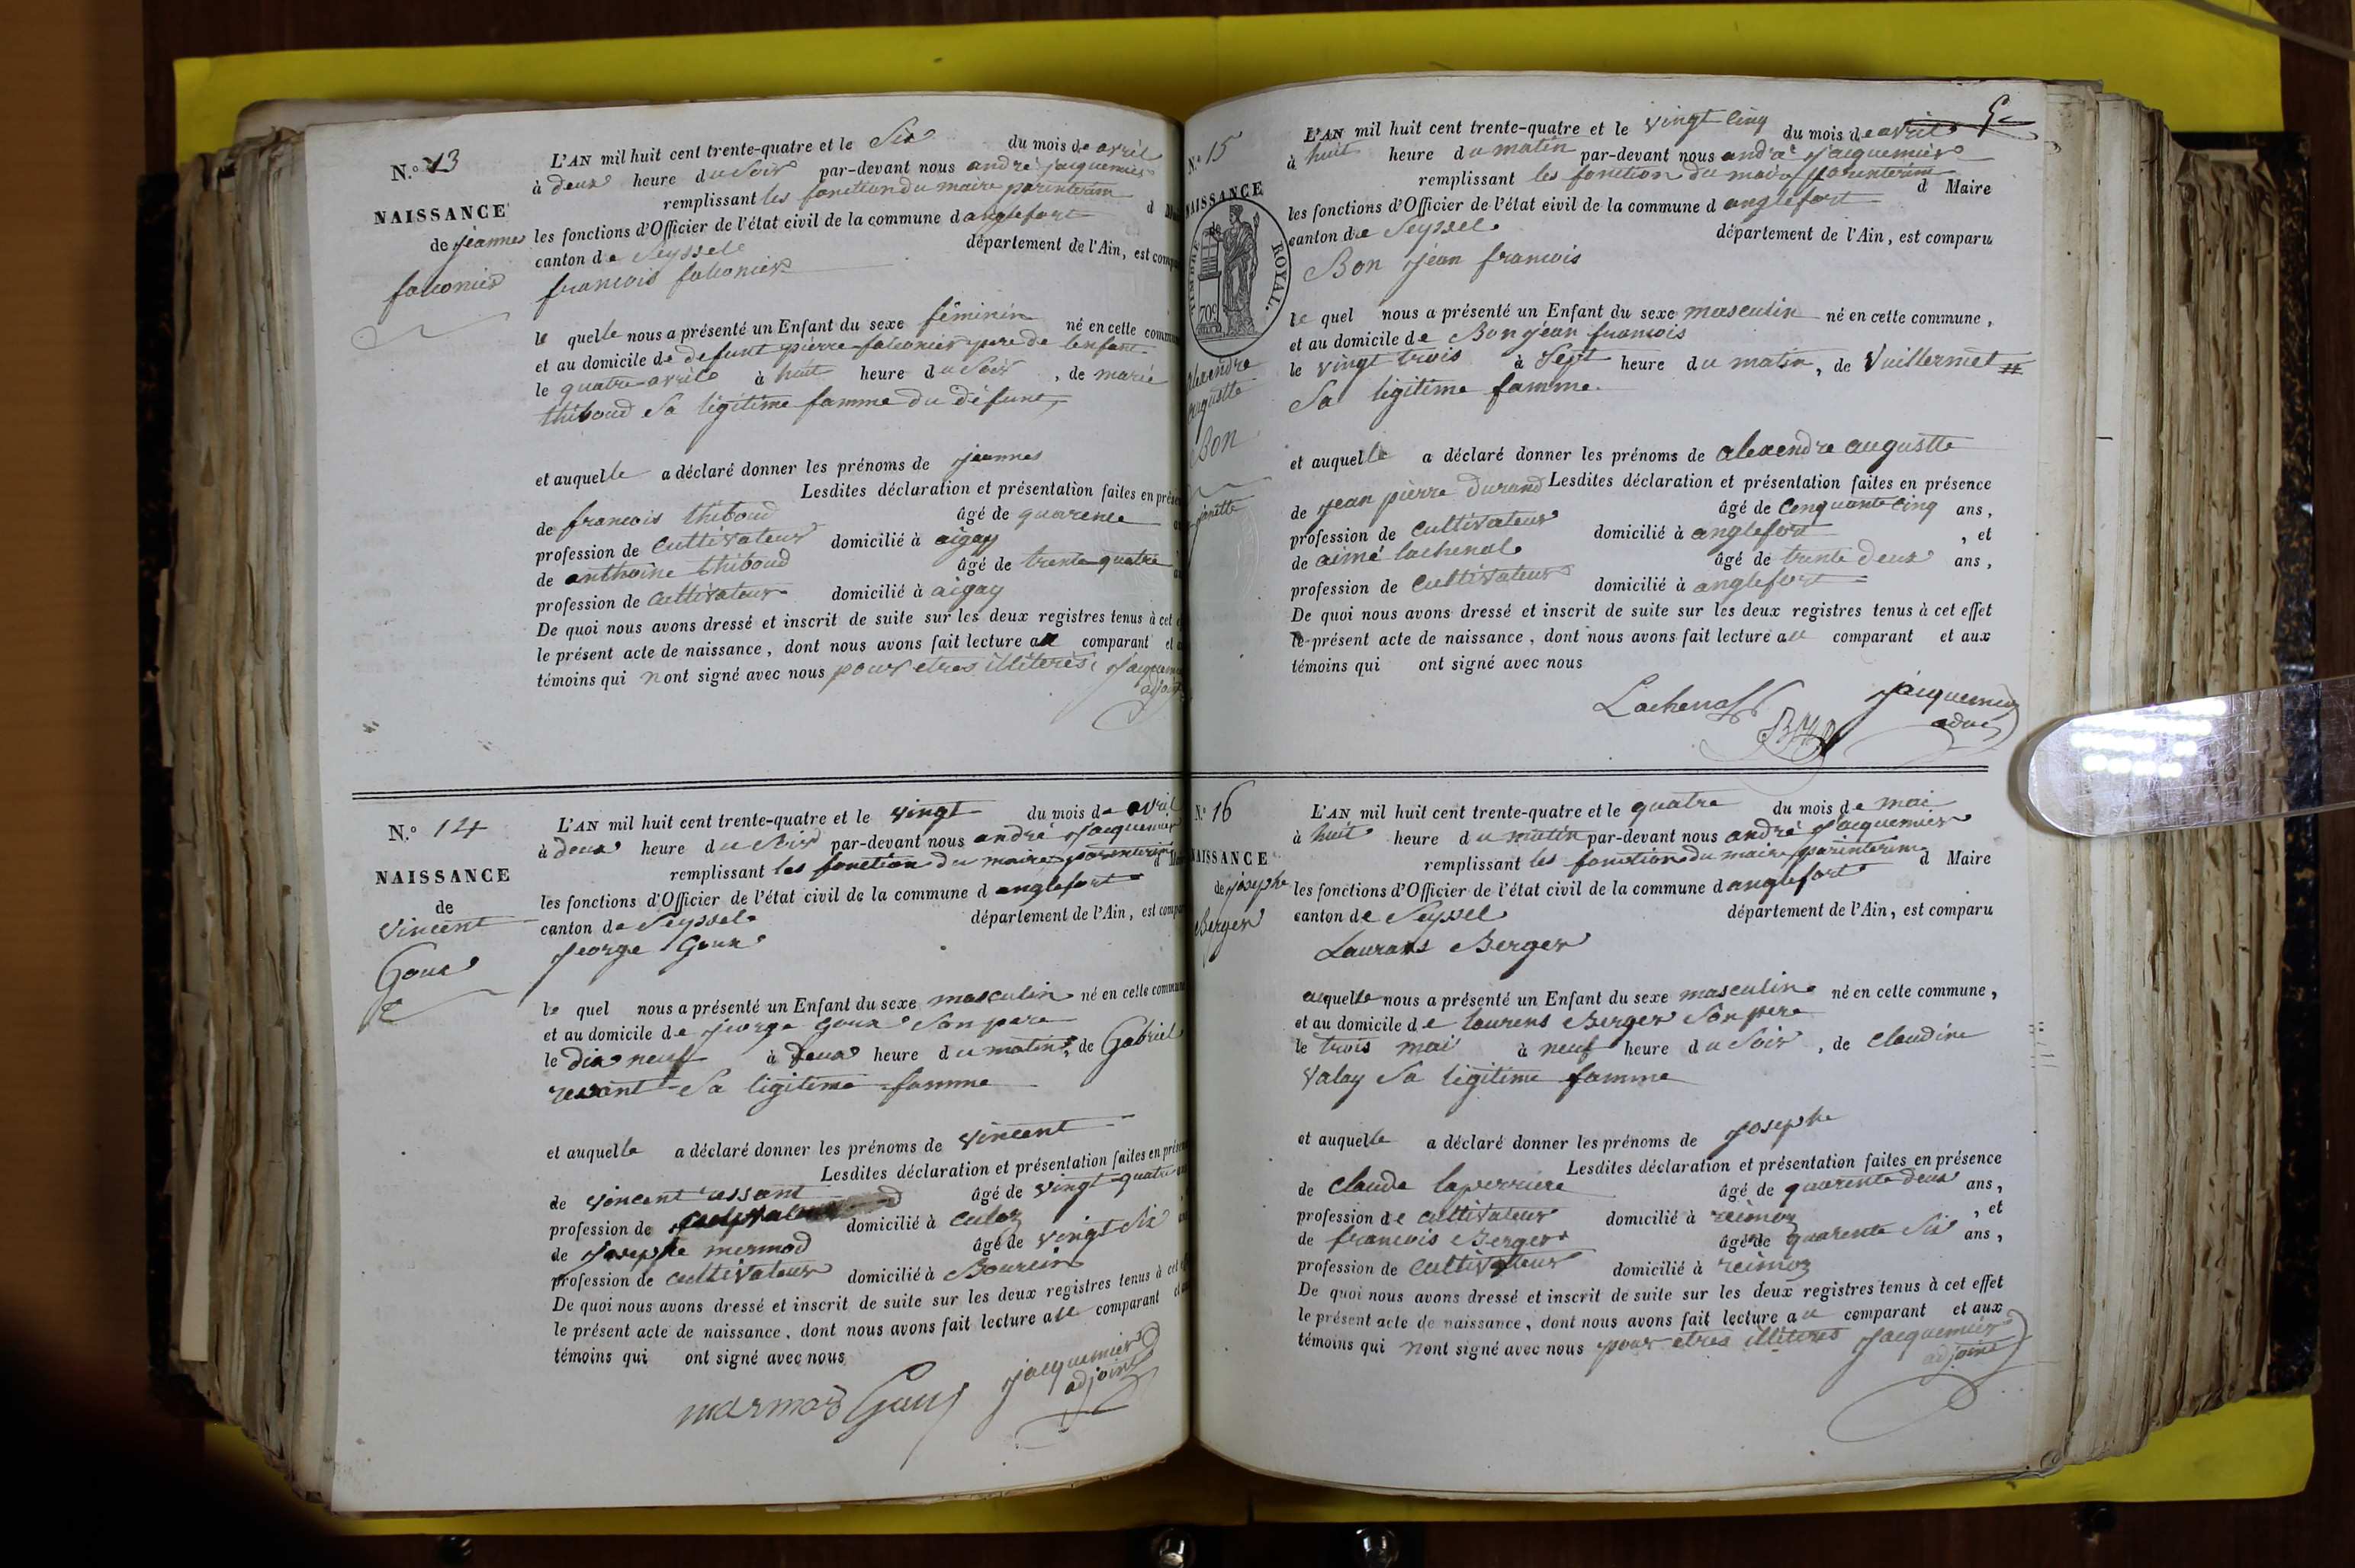 N.o 13
NAISSANCE
de jeanne
falconier
L'AN mil huit cent trente-quatre et le Six du mois de avril
à deux heure du Soir par-devant nous andré jacquemier
remplissant les fonction du maire parinterim d
les fonctions d'Officier de l'état civil de la commune d anglefort
canton de Seyssel département de l'Ain, est comp
francois falconier
le quelle nous a présenté un Enfant du sexe féminin né en cette commun
et au domicile de defunt pierre falconier pere de lenfant
le quatre avril à huit heure du Soir, de marie
thiboud Sa ligitime famme du défunt,
et auquelle a déclaré donner les prénoms de jeanne
Lesdites déclaration et présentation faites en prése
de francois thiboud âgé de quarente
profession de Cultivateur domicilié à aigay
de anthoine thiboud âgé de trente quatre
profession de Cultivateur domicilié à aigay
De quoi nous avons dressé et inscrit de suite sur les deux registres tenus à cet
le présent acte de naissance, dont nous avons fait lecture au comparant et
témoins qui nont signé avec nous pour etres illiterés, Jacquemier
adjoint
N.o 14
NAISSANCE
de
Vincent
Goux
L'AN mil huit cent trente-quatre et le vingt du mois de avril
à deux heure du Soir par-devant nous andré Jacquemier
remplissant les fonction du maire parinterim d
les fonctions d'Officier de l'état civil de la commune d anglefort
canton de Seyssel département de l'Ain, est compa
jeorge Goux
le quel nous a présenté un Enfant du sexe masculin né en cette commune
et au domicile de jeorge goux Son pere
le dix neuf à deux heure du matin, de Gabriel
ressant Sa ligitime famme
et auquelle a déclaré donner les prénoms de Vincent
Lesdites déclaration et présentation faites en prése
de Vincent ressant âgé de vingt quatre
profession de domicilié à Culoz
de Josephe mermod âgé de vingt Six
profession de cultivateur domicilié à Bourcin
De quoi nous avons dressé et inscrit de suite sur les deux registres tenus à cet
le présent acte de naissance, dont nous avons fait lecture au comparant et
témoins qui ont signé avec nous
marmod Goux Jacquemier
adjoint
N.o 15
NAISSANCE
TIMBRE ROYAL.
70c
alexendre
augustte
Bon
L'AN mil huit cent trente-quatre et le vingt Cinq du mois de avril
à huit heure du matin par-devant nous andré Jacquemier
remplissant les fonction du maire parinterim d Maire
les fonctions d'Officier de l'état civil de la commune d anglefort
canton de Seyssel département de l'Ain, est comparu
Bon jean francois
le quel nous a présenté un Enfant du sexe masculin né en cette commune,
et au domicile de Bon jean francois
le vingt trois à Sept heure du matin, de Vuillermet
Sa ligitime famme.
et auquelle a déclaré donner les prénoms de alexendre augustte
Lesdites déclaration et présentation faites en présence
de jean pierre durand âgé de Cenquante Cinq ans,
profession de Cultivateur domicilié à anglefort, et
de aimé lachenal âgé de trente deux ans,
profession de Cultivateur domicilié à anglefort
De quoi nous avons dressé et inscrit de suite sur les deux registres tenus à cet effet
le présent acte de naissance, dont nous avons fait lecture au comparant et aux
témoins qui ont signé avec nous
Lachenal Jacquemier
N.o 16
NAISSANCE
de josephe
Berger
L'AN mil huit cent trente-quatre et le quatre du mois de mai
à huit heure du matin par-devant nous andré Jacquemier
remplissant les fonction du maire parinterim d Maire
les fonctions d'Officier de l'état civil de la commune d anglefort
canton de Seyssel département de l'Ain, est comparu
Laurans Berger
auquelle nous a présenté un Enfant du sexe masculin né en cette commune,
et au domicile de laurens Berger Son pere
le trois mai à neuf heure du Soir, de Claudine
Valay Sa ligitime famme
et auquelle a déclaré donner les prénoms de Josephe
Lesdites déclaration et présentation faites en présence
de Claude laperriere âgé de quarente deux ans,
profession de cultivateur domicilié à reimoz, et
de francois Berger âgé de quarente Six ans,
profession de Cultivateur domicilié à reimoz
De quoi nous avons dressé et inscrit de suite sur les deux registres tenus à cet effet
le présent acte de naissance, dont nous avons fait lecture au comparant et aux
témoins qui nont signé avec nous pour etres illiterés Jacquemier
adjoint